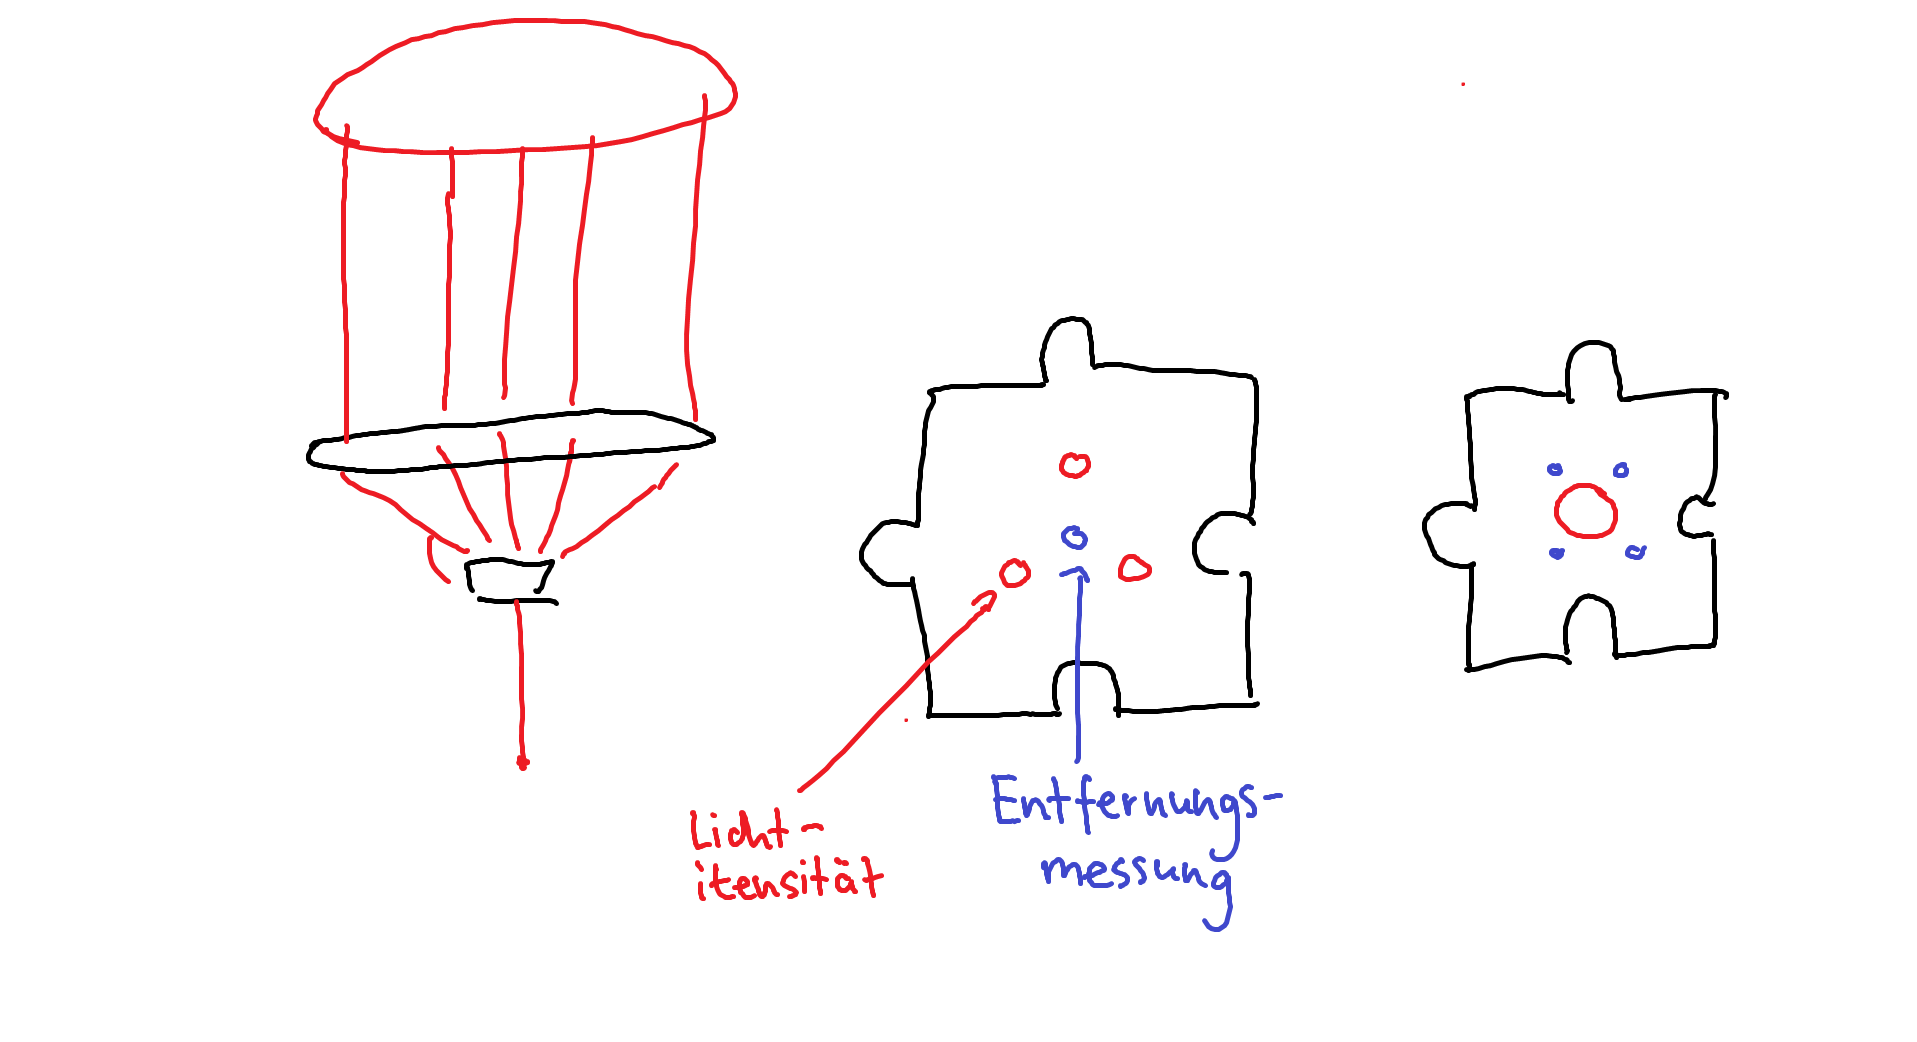 Licht-
itensität
Entfernungs-
messung